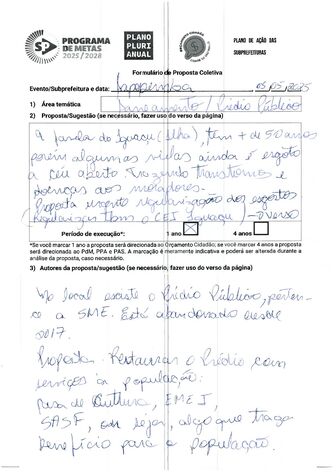 PROGRAMA
DE METAS
2025/2028
PLANO
PLURI
ANUAL
PLANO DE AÇÃO DAS
SUBPREFEITURAS
Formulário de Proposta Coletiva
Evento/Subprefeitura e data: Sapopemba 03/05/2025
1) Área temática Saneamento / Prédio Público
2) Proposta/Sugestão (se necessário, fazer uso do verso da página)
A Jardim do Iguaçu (ilha), tem + de 50 anos
porem algumas vielas ainda é esgoto
a céu aberto trazendo transtornos e
doenças aos moradores.
Proposta urgente regularização dos esgotos
(Regularizar tbm o CEI Iguaçu) → verso
Período de execução*: 1 ano X 4 anos
*Se você marcar 1 ano a proposta será direcionada ao Orçamento Cidadão; se você marcar 4 anos a proposta
será direcionada ao PdM, PPA e PAS. A marcação é meramente indicativa e poderá ser alterada durante a
análise da proposta, caso necessário.
3) Autores da proposta/sugestão (se necessário, fazer uso do verso da página)
No local existe o Prédio Público, perten-
ce a SME. Está abandonado desde
2017.
Proposta: Restaurar o Prédio com
serviços a população:
Casa de Cultura, EMEI,
SASF, ou seja, algo que traga
benefício para a população.